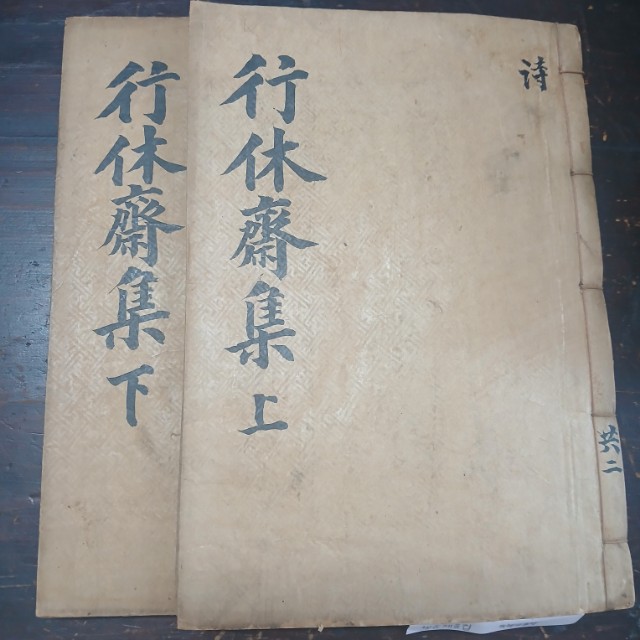 詩
行休齋集 上
共二
行休齋集 下